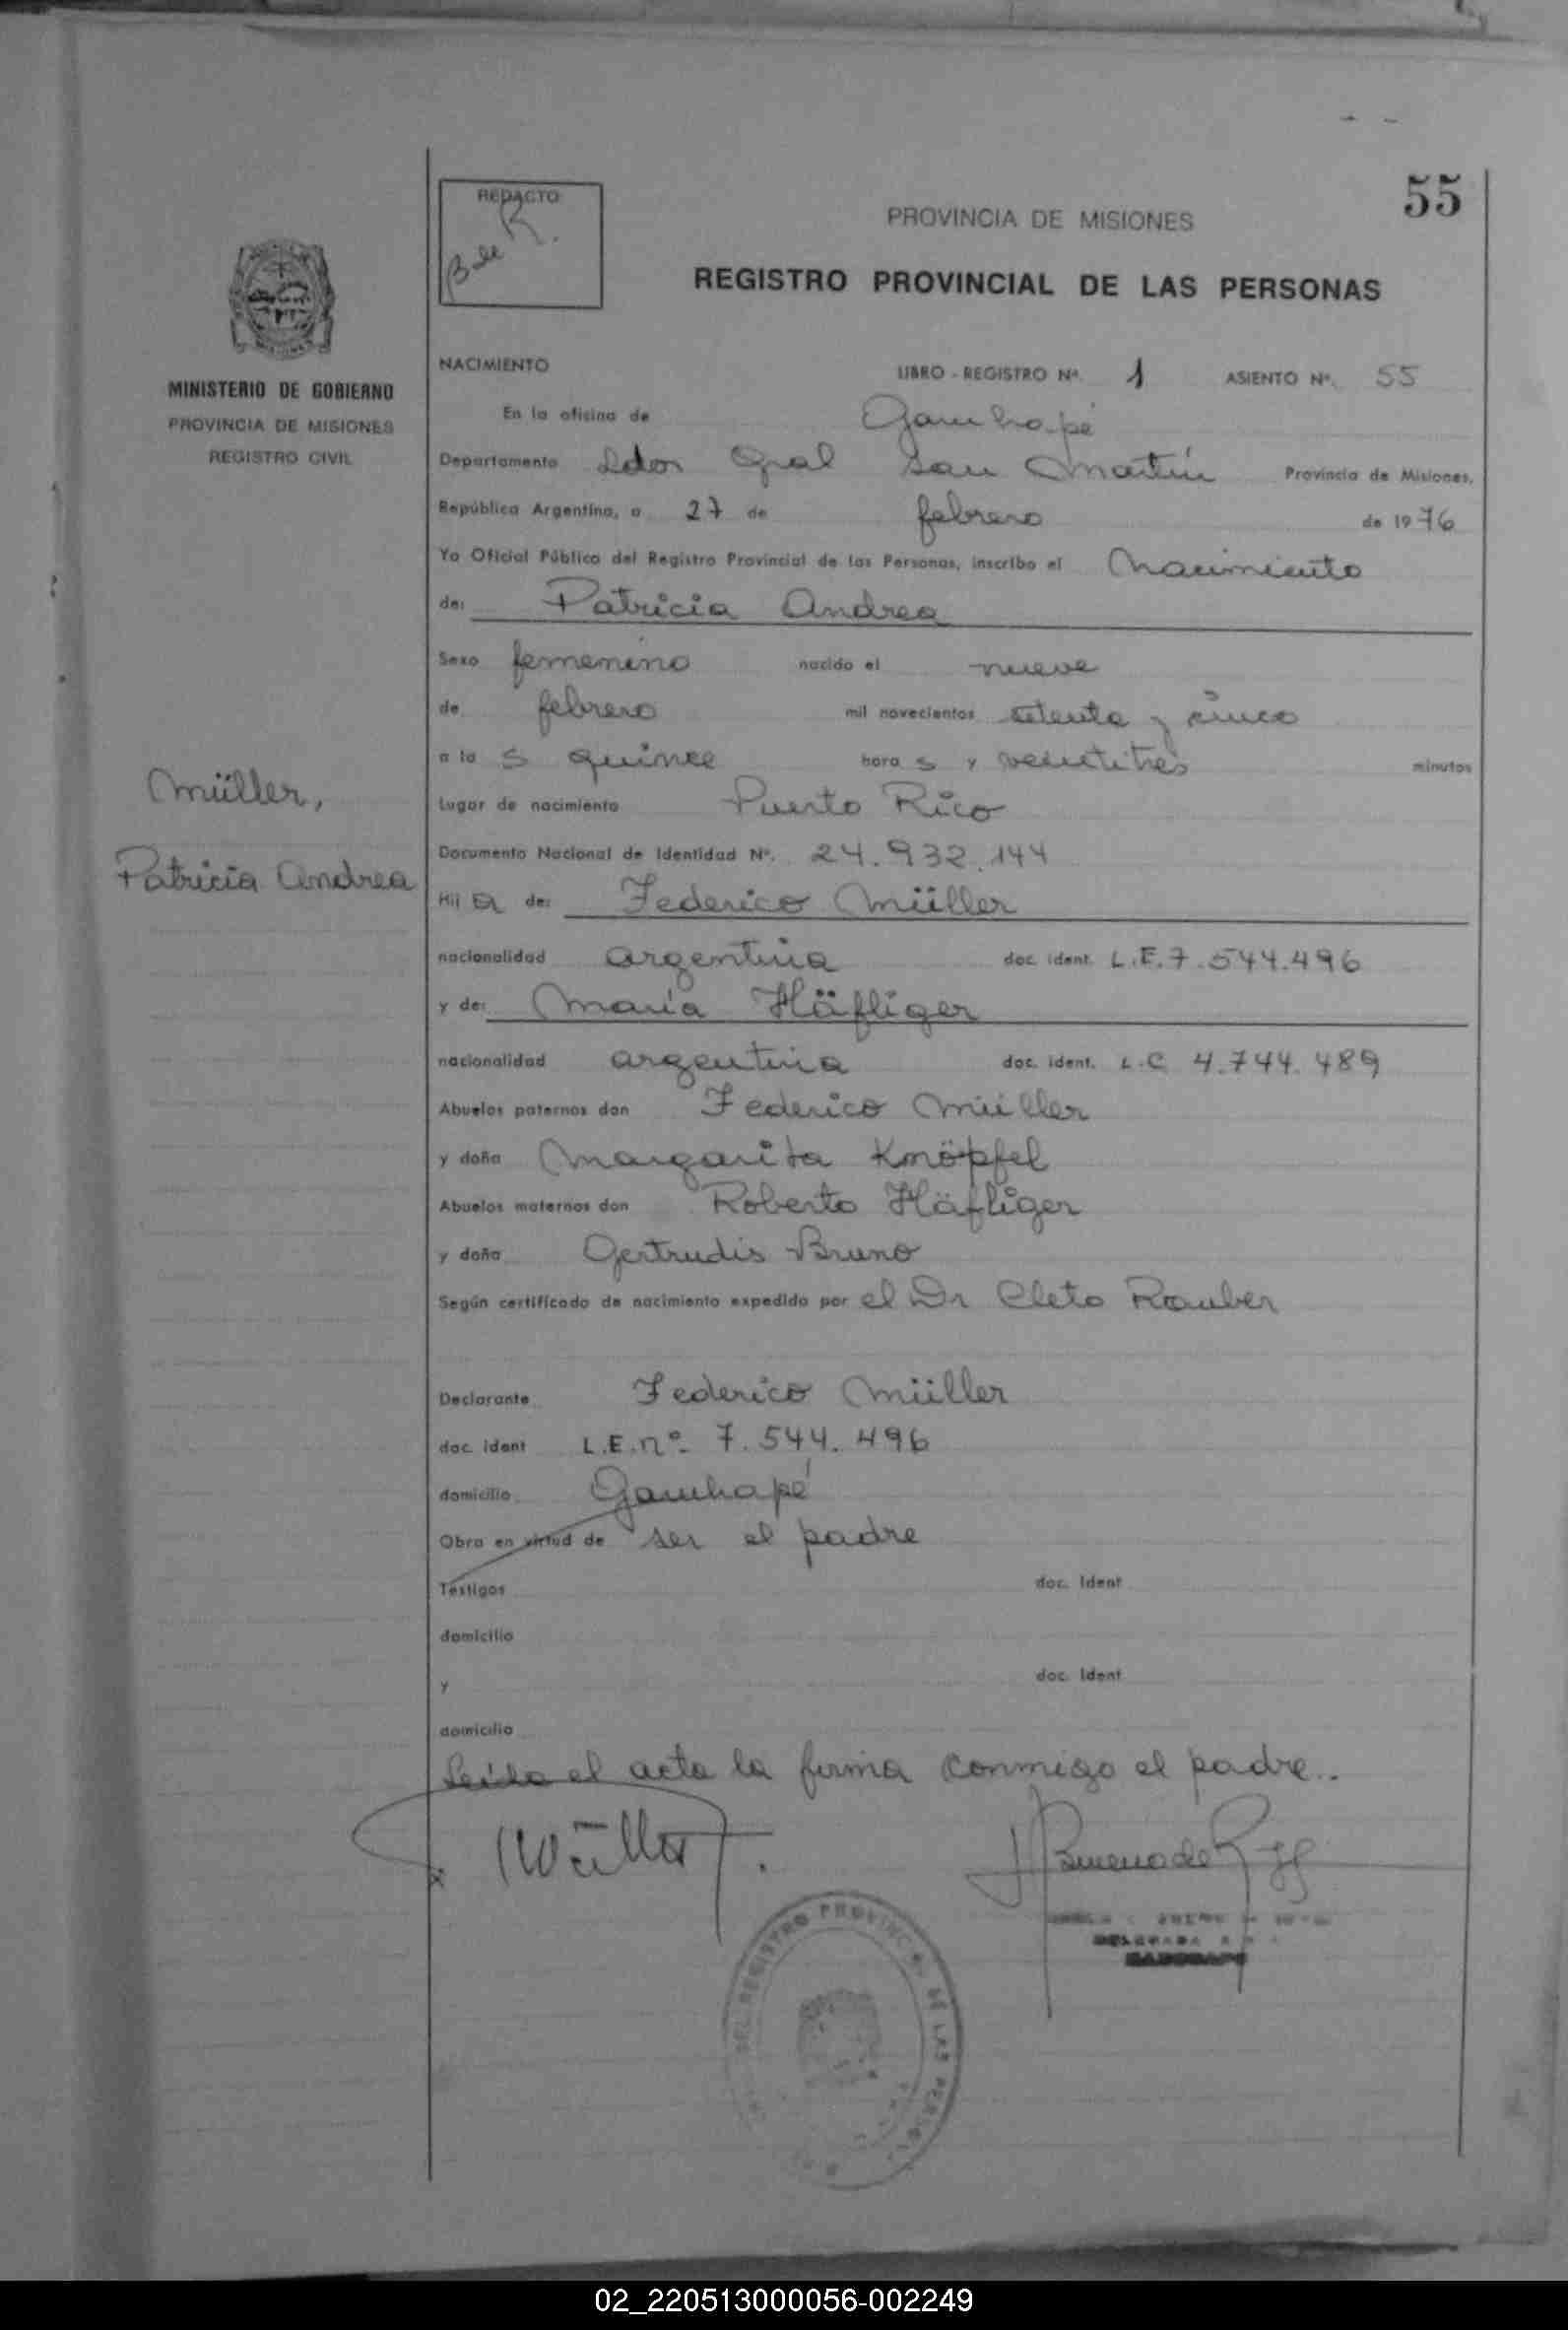 55
REDACTO
B de R.
PROVINCIA DE MISIONES
REGISTRO PROVINCIAL DE LAS PERSONAS
MINISTERIO DE GOBIERNO
PROVINCIA DE MISIONES
REGISTRO CIVIL
NACIMIENTO LIBRO - REGISTRO Nº. 1 ASIENTO Nº. 55
En la oficina de Garuhapé
Departamento Ldor Gral San Martín Provincia de Misiones,
República Argentina, a 27 de febrero de 1976
Yo Oficial Público del Registro Provincial de las Personas, inscribo el Nacimiento
de: Patricia Andrea
Sexo femenino nacido el nueve
de febrero mil novecientos setenta y cinco
a la s quince hora s y veintitrés minutos
Müller,
Patricia Andrea
Lugar de nacimiento Puerto Rico
Documento Nacional de Identidad Nº. 24.932.144
Hij a de: Federico Müller
nacionalidad argentina doc. ident. L.E.7.544.496
y de: María Häfliger
nacionalidad argentina doc. ident. L.C 4.744.489
Abuelos paternos don Federico Müller
y doña Margarita Knöpfel
Abuelos maternos don Roberto Häfliger
y doña Gertrudis Bruno
Según certificado de nacimiento expedido por el Dr Cleto Rauber
Declarante Federico Müller
doc. ident L.E.nº. 7.544.496
domicilio Garuhapé
Obra en virtud de ser el padre
Testigos doc. Ident
domicilio
y doc. Ident
domicilio
Leída el acta la firma conmigo el padre..
Müller
DEL REGISTRO PROVINCIAL DE LAS
DELEGADA
GARUHAPE
02_220513000056-002249